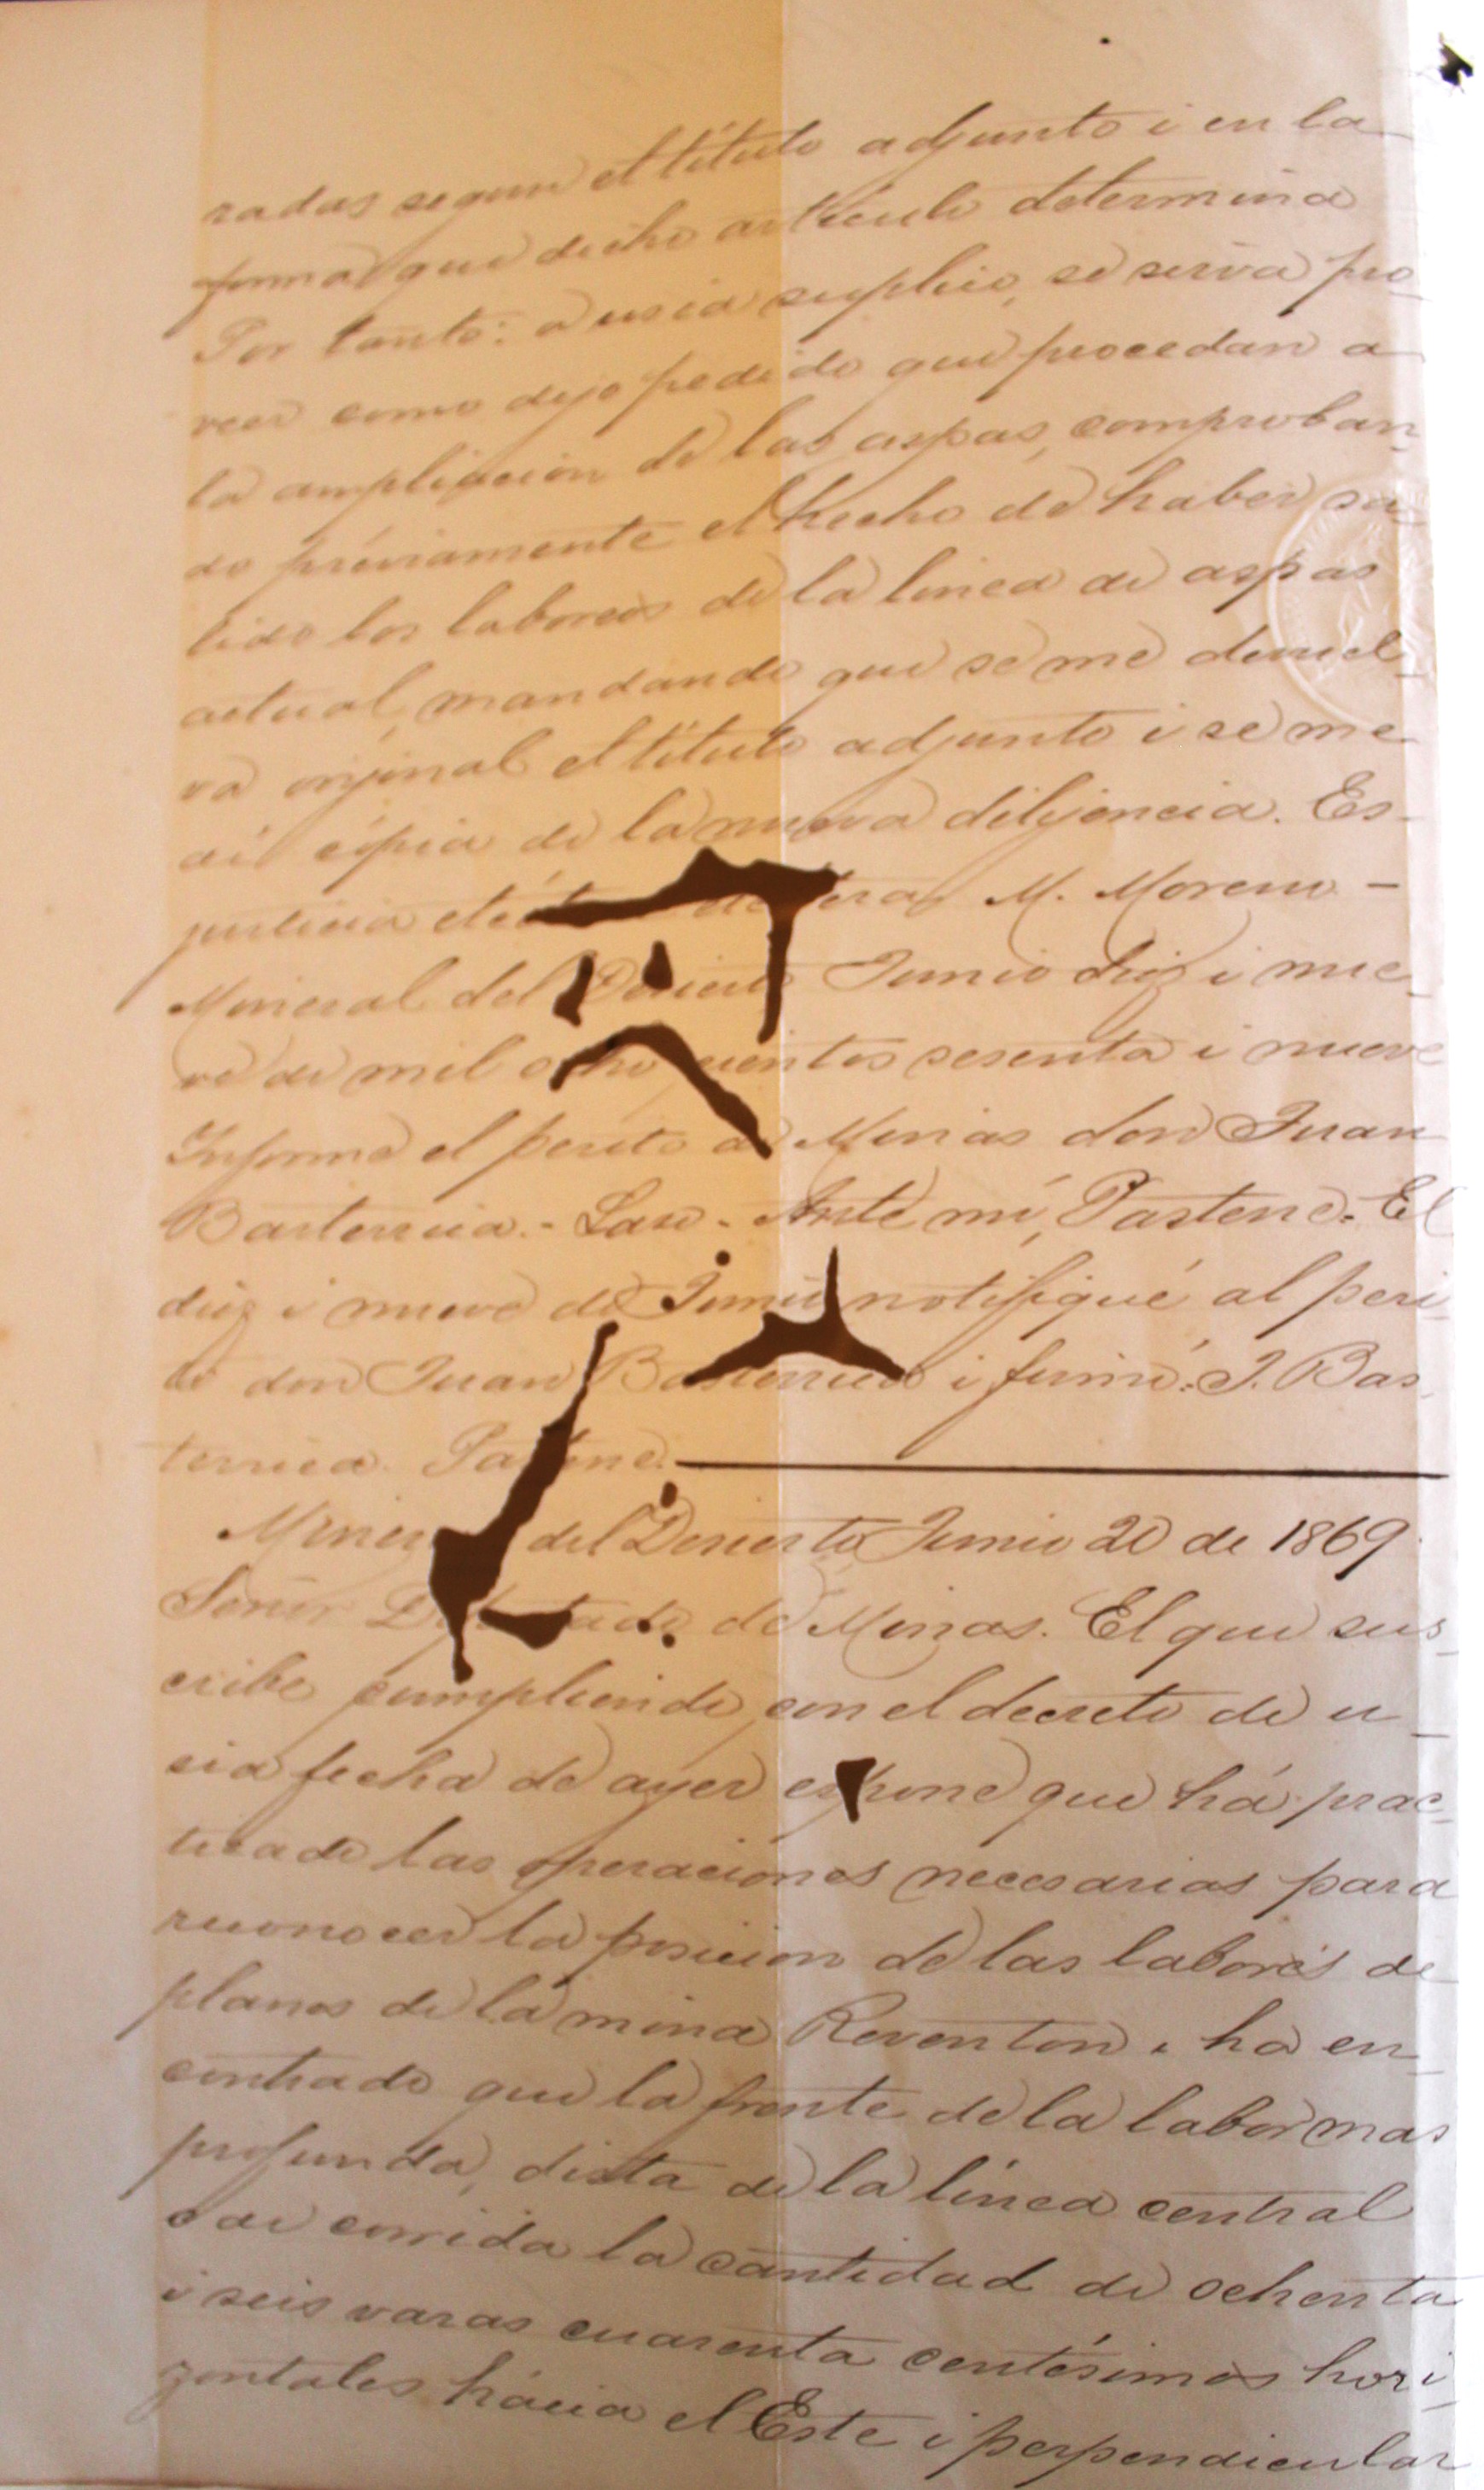 radas segun el título adjunto i en la
forma que dicho artículo determina
Por tanto: a usia suplico, se sirva pro_
veer como dejo pedido que procedan a
la ampliacion de las aspas, comproban_
do préviamente el hecho de haber sa_
lido los laboreos de la linea de aspas
actual, mandando que se me devuel_
va orijinal el título adjunto i se me
dé cópia de la nueva dilijencia. Es_
justicia etc M. Moreno -
Mineral del Desierto Junio diez i nue_
ve de mil ochocientos sesenta i nueve
Informe el perito de Minas don Juan
Basterrica. - Laso - Ante mí, Pastene. El
diez i nueve de Junio notifiqué al peri_
to don Juan Basterrica i firmó: J. Bas_
terrica. Pastene.
Mineral del Desierto Junio 20 de 1869
Señor Diputado de Minas. El que sus_
cribe cumpliendo con el decreto de u_
sia fecha de ayer espone que há prac_
ticado las operaciones necesarias para
reconocer la posicion de las labores de
planes de la mina Reventon i ha en_
contrado que la frente de la labor mas
profunda, dista de la línea central
o de corrida la cantidad de ochenta
i seis varas cuarenta centésimos hori_
zontales hácia el Este i perpendicular